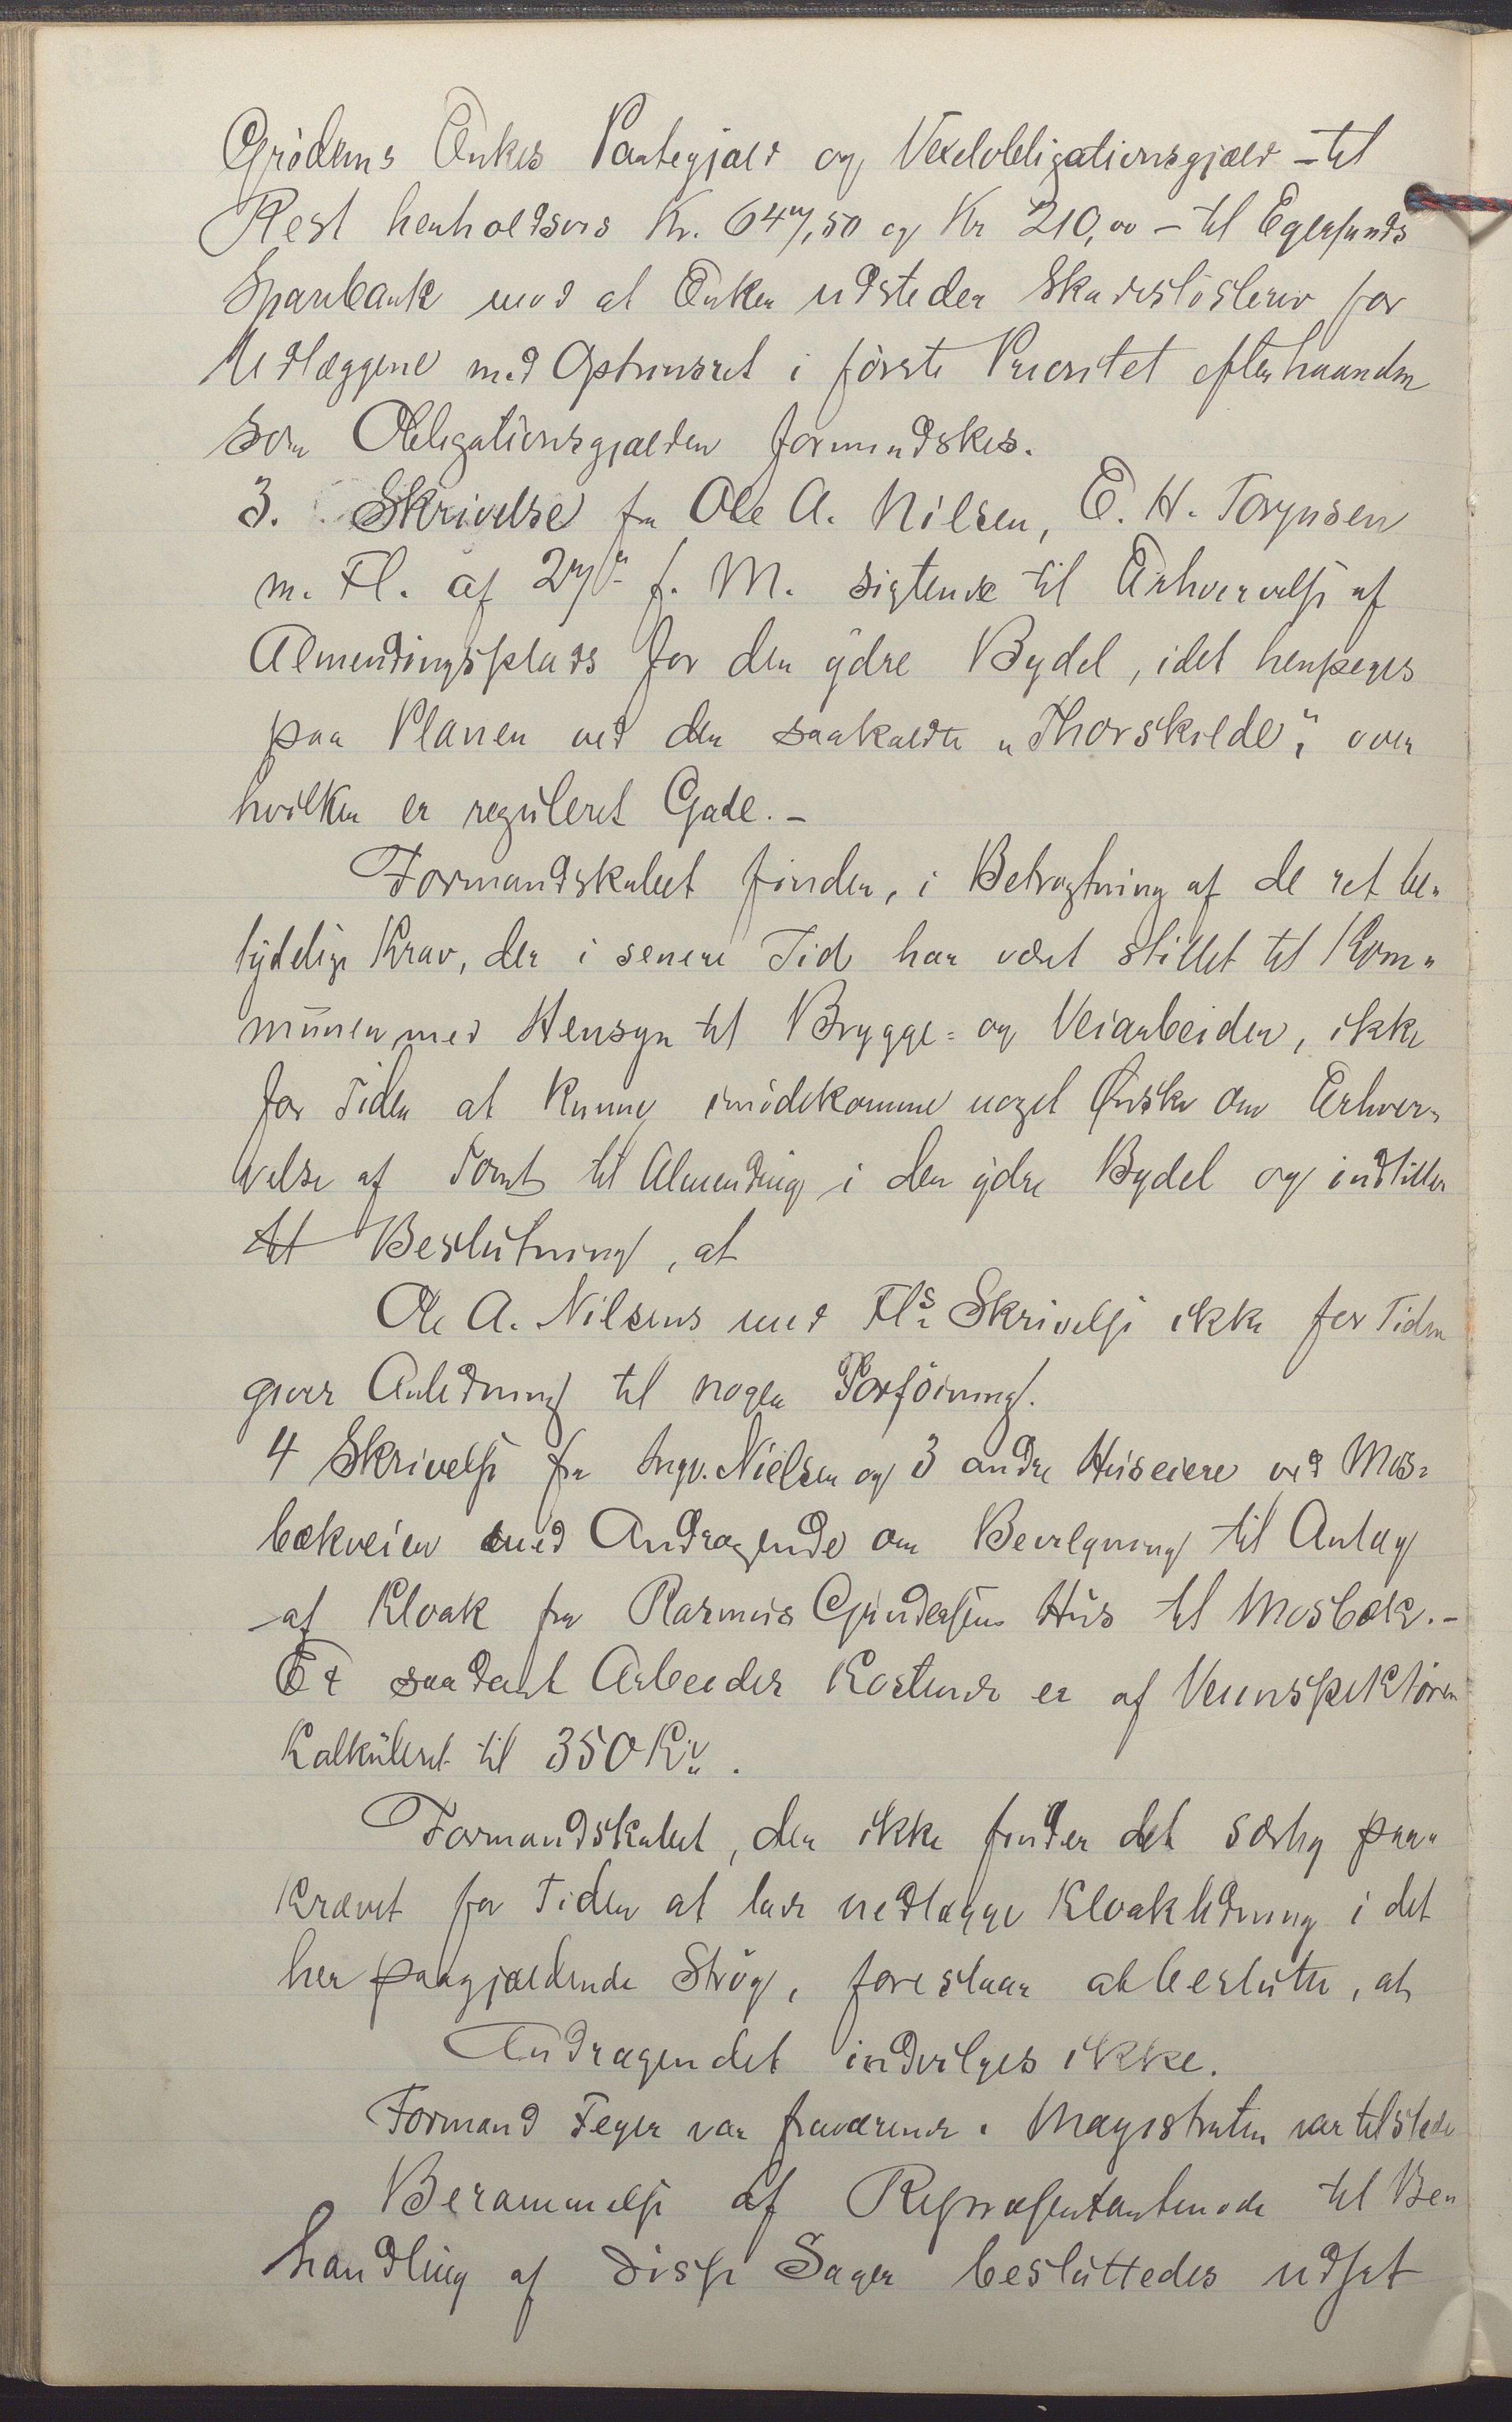 Grødems Enkes Pantegjæld og Vexelobligationsgjæld – til
Rest henholdsvis Kr. 647,50 og Kr 210,00 – til Egersunds
Sparebank mod at Enken udsteder Skadesløsbrev for
Udlæggene med Optrinsret i første Prioritet efterhaanden
som Obligationsgjælden formindskes.
3. Skrivelse fra Ole A. Nilsen, E. H. Torgusen
m. Fl. af 27de f. M. sigtende til Erhvervelse af
Almendingsplads for den ydre Bydel, idet henpeges
paa Planen ved den saakaldte „Thorskilde", over
hvilken er reguleret Gade. –
Formandskabet finder, i Betragtning af de ret be„
tydelige Krav, der i senere Tid har været stillet til Kom„
munen med Hensyn til Brygge= og Veiarbeider, ikke
for Tiden at kunne imødekomme noget Ønske om Erhver„
velse af Tomt til Almending i den ydre Bydel og indstiller
til Beslutning, at
Ole A. Nilsens med Fl.s Skrivelse ikke for Tiden
giver Anledning til nogen Forføining.
4 Skrivelse fra Ingv. Nielsen og 3 andre Huseiere ved Mos=
bækveien med Andragende om Bevilgning til Anlæg
af Kloak fra Rasmus Gundersens Hus til Mosbæk. –
Et saadant Arbeides Kostende er af Veiinspektøren
kalkuleret til 350 Kr.
Formandskabet, der ikke finder det særlig paa„
krævet for Tiden at lade nedlægge Kloakledning i det
her paagjældende Strøg, foreslaar at beslutte, at
Andragendet indvilges ikke.
Formand Feyer var fraværende. Magistraten var tilstede
Berammelse af Repræsentantmøde til Be„
handling af disse Sager besluttedes udsat